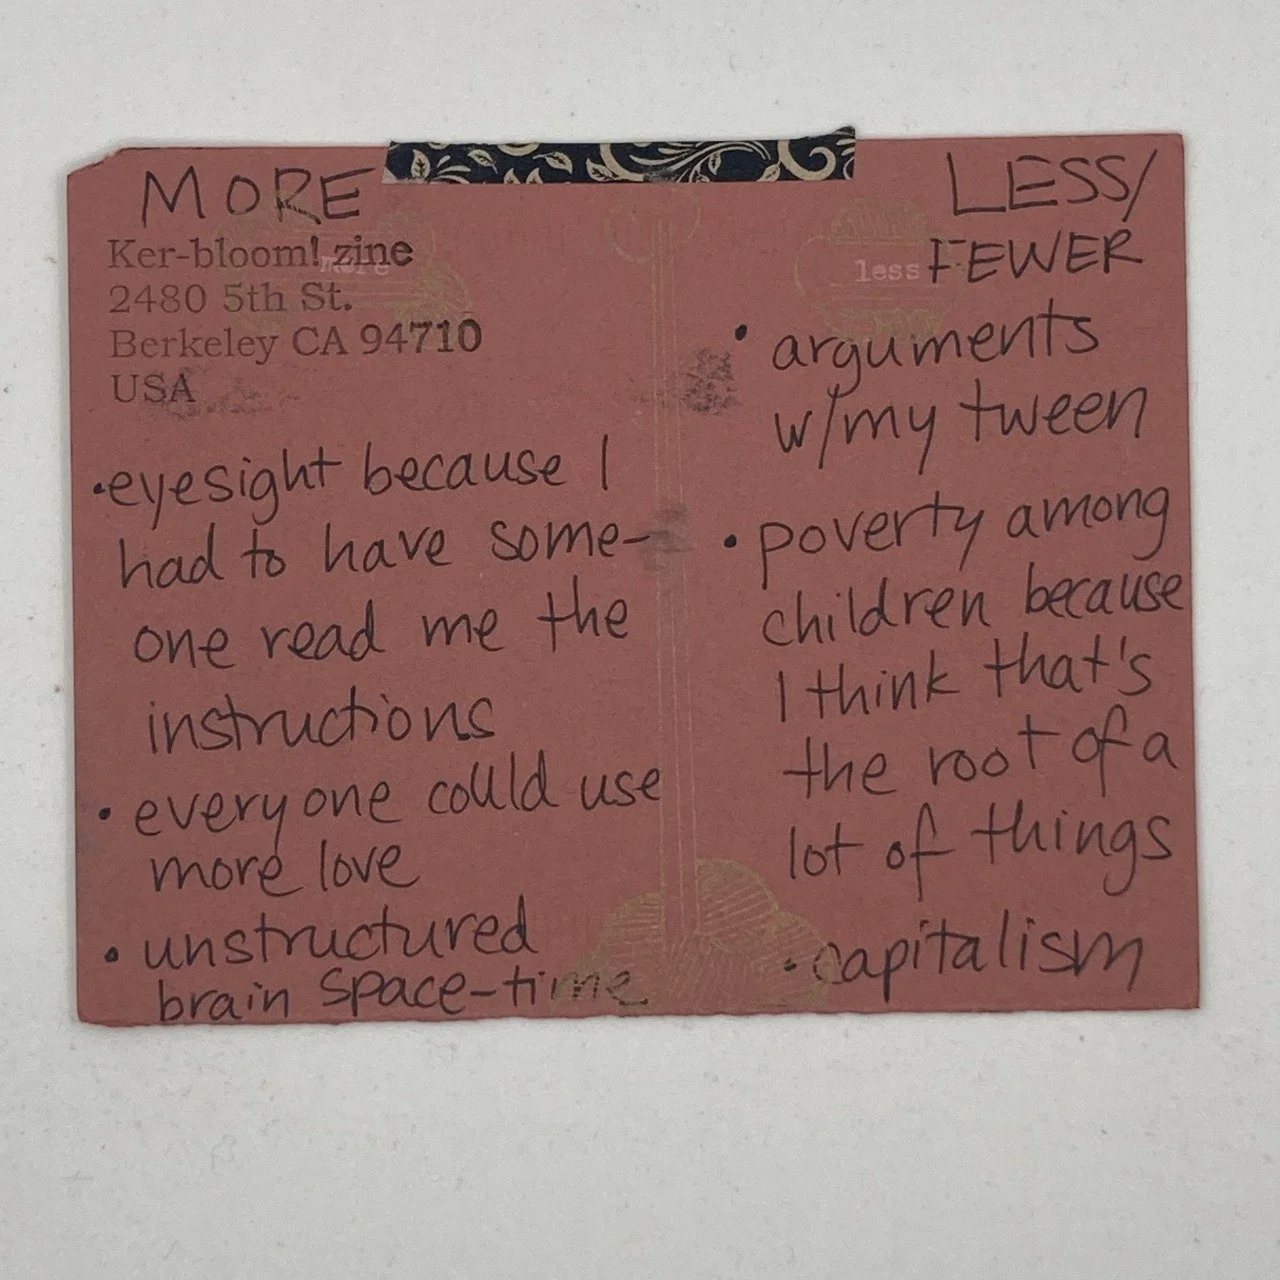 MORE
more
Ker-bloom! zine
2480 5th St.
Berkeley CA 94710
USA
•eyesight because I
had to have some-
one read me the
instructions
• everyone could use
more love
• unstructured
brain space-time
LESS/
less FEWER
• arguments
w/my tween
• poverty among
children because
I think that's
the root of a
lot of things
• capitalism